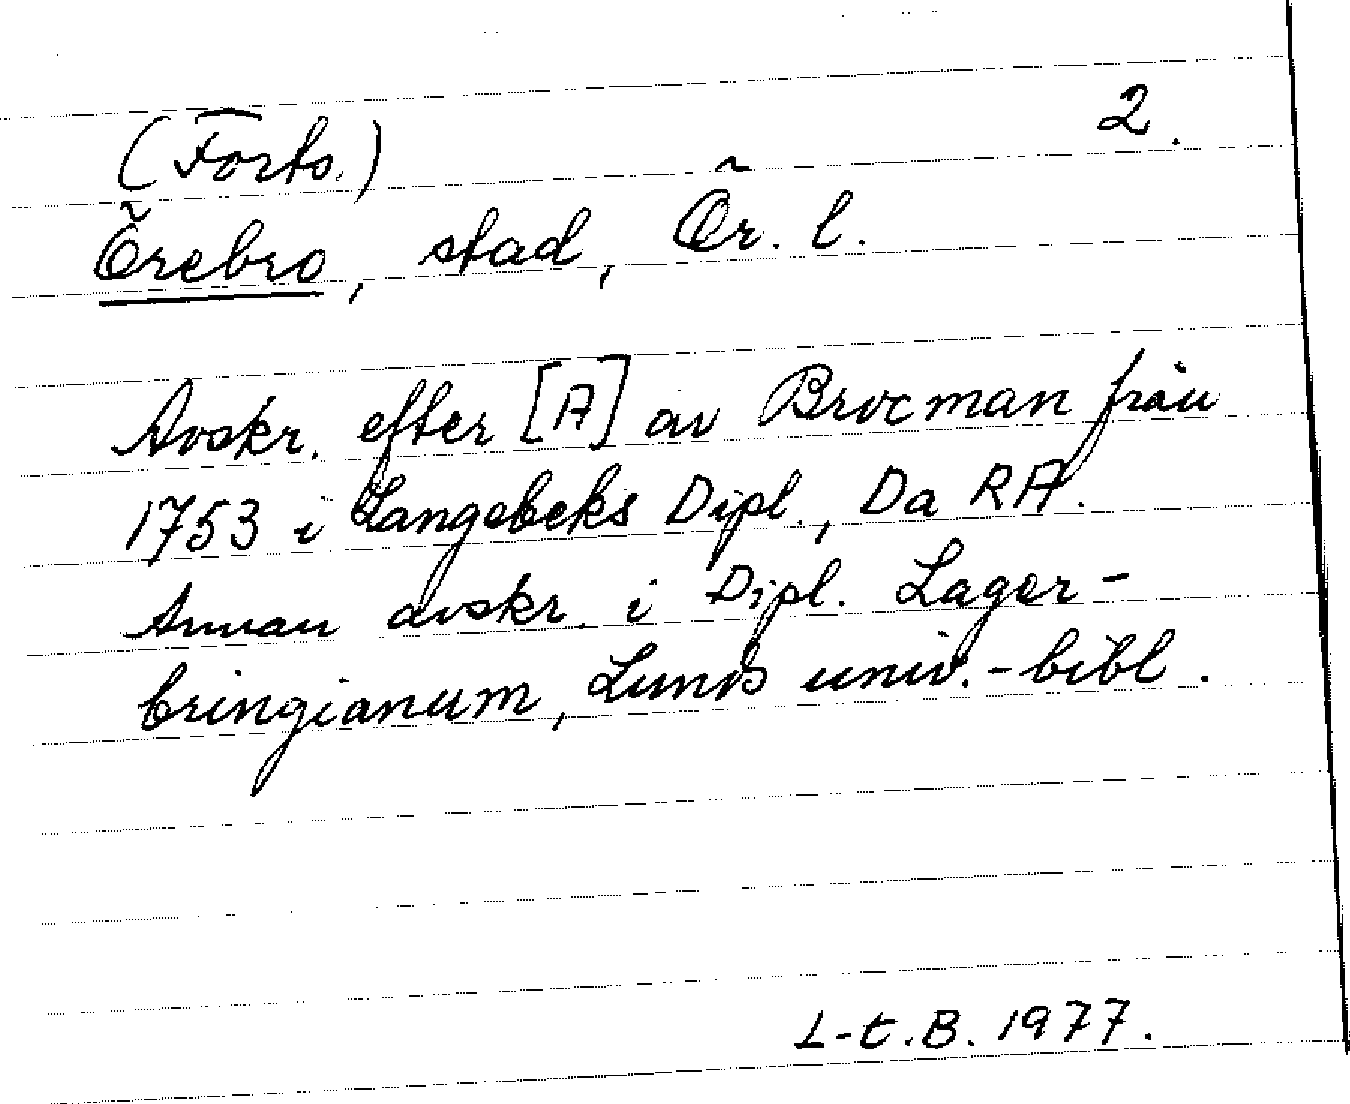 (Forts.) 2.
Örebro, stad, Ör. l.
Avskr. efter [A] av Brocman från
1753 i Langebeks Dipl., Da RA.
Annan avskr. i Dipl. Lager-
bringianum, Lunds univ.-bibl.
L-t.B. 1977.